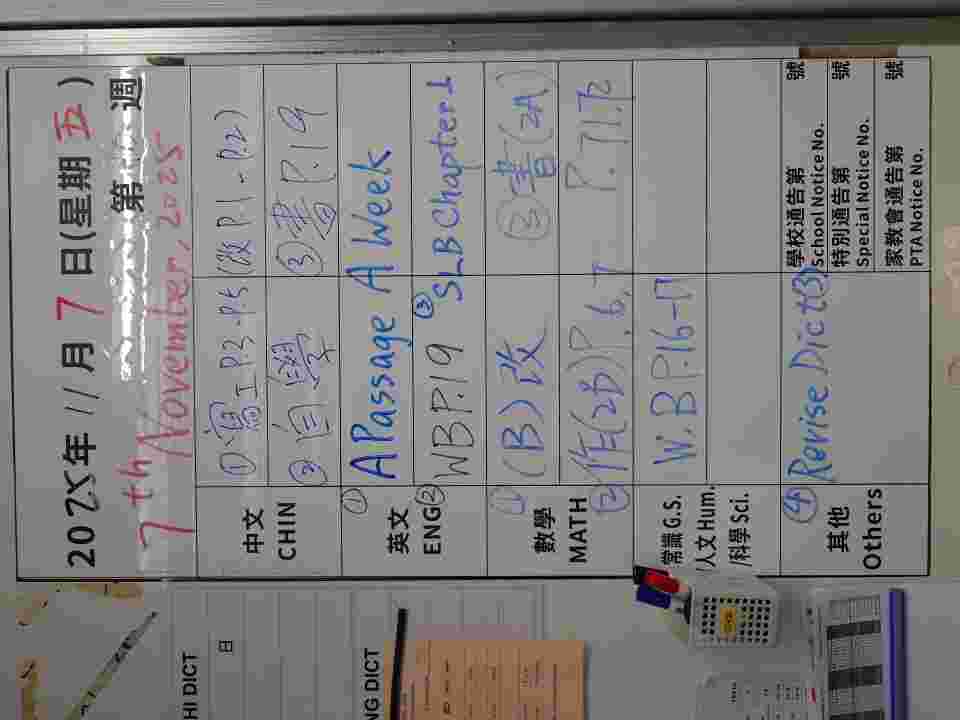 2025年11月7日(星期五)
第 週
7th November, 2025
中文
CHIN
①寫工P.3-P.5 (改P.1-P.2)
②自學 ③書P.19
英文
ENG
① A Passage A Week
② WBP.19 ③ SLB Chapter 1
數學
MATH
① (B)改 ③書(2A)
②作(2B)P.6,7 P.71下
常識 G.S.
/人文 Hum.
/科學 Sci.
W.B P.16-17
其他
Others
④ Revise Dict(3)
學校通告第 號
School Notice No.
特別通告第 號
Special Notice No.
家教會通告第 號
PTA Notice No.
HI DICT
日
NG DICT